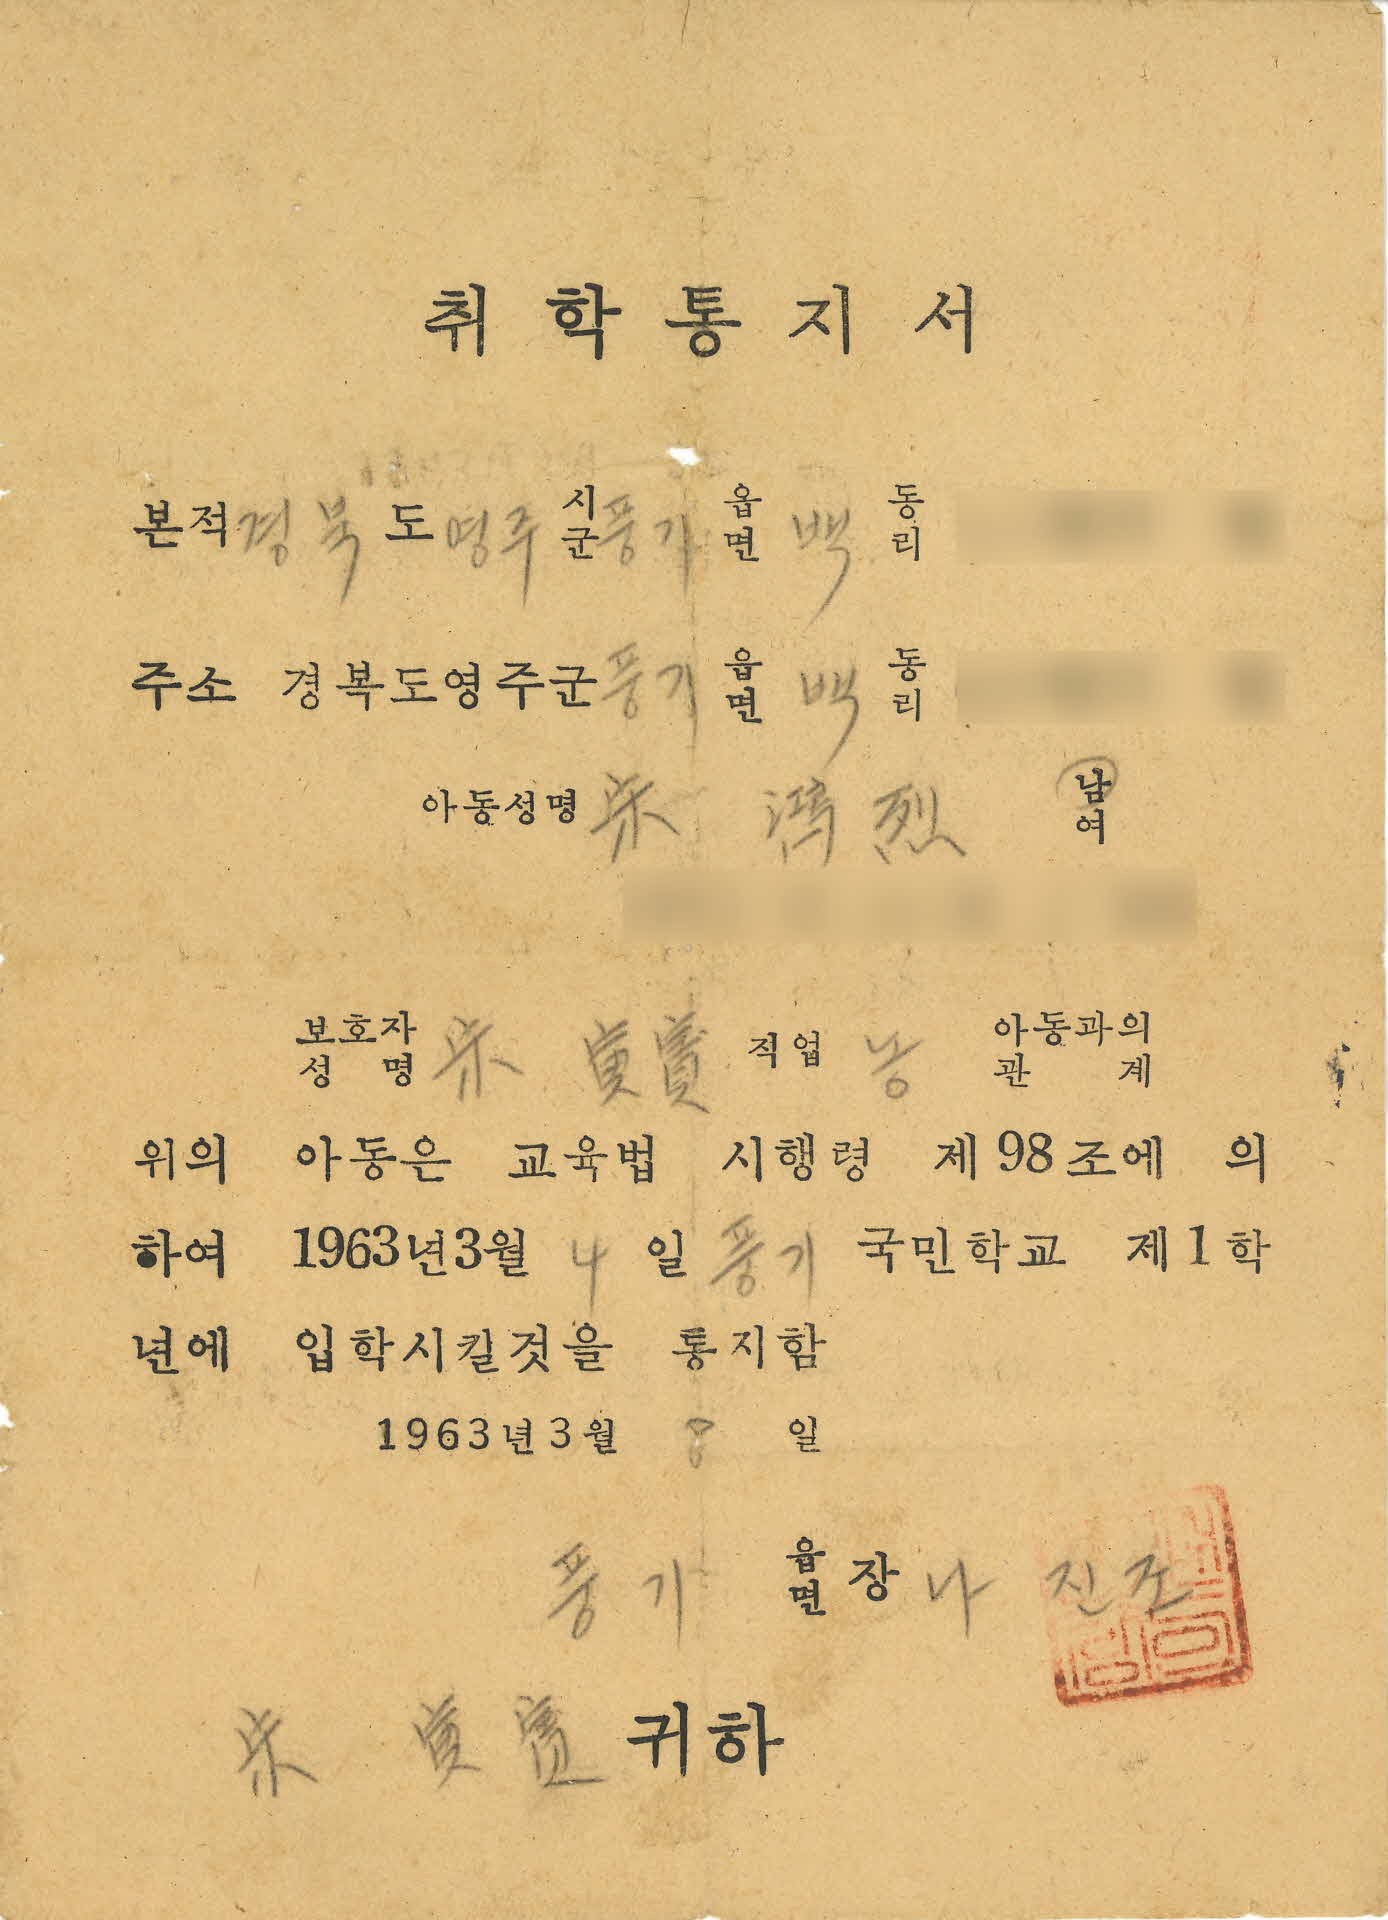 취학통지서
본적 경북 도 영주 시군 풍기 읍면 백 동리
주소 경북도영주군 풍기 읍면 백 동리
아동성명 宋 鴻烈 남여
보호자성명 宋 직업 농 아동과의관계
위의 아동은 교육법 시행령 제98조에 의
하여 1963년3월 4 일 풍기 국민학교 제1학
년에 입학시킬것을 통지함
1963년3월 일
풍기 읍면장 나 진조
宋 귀하